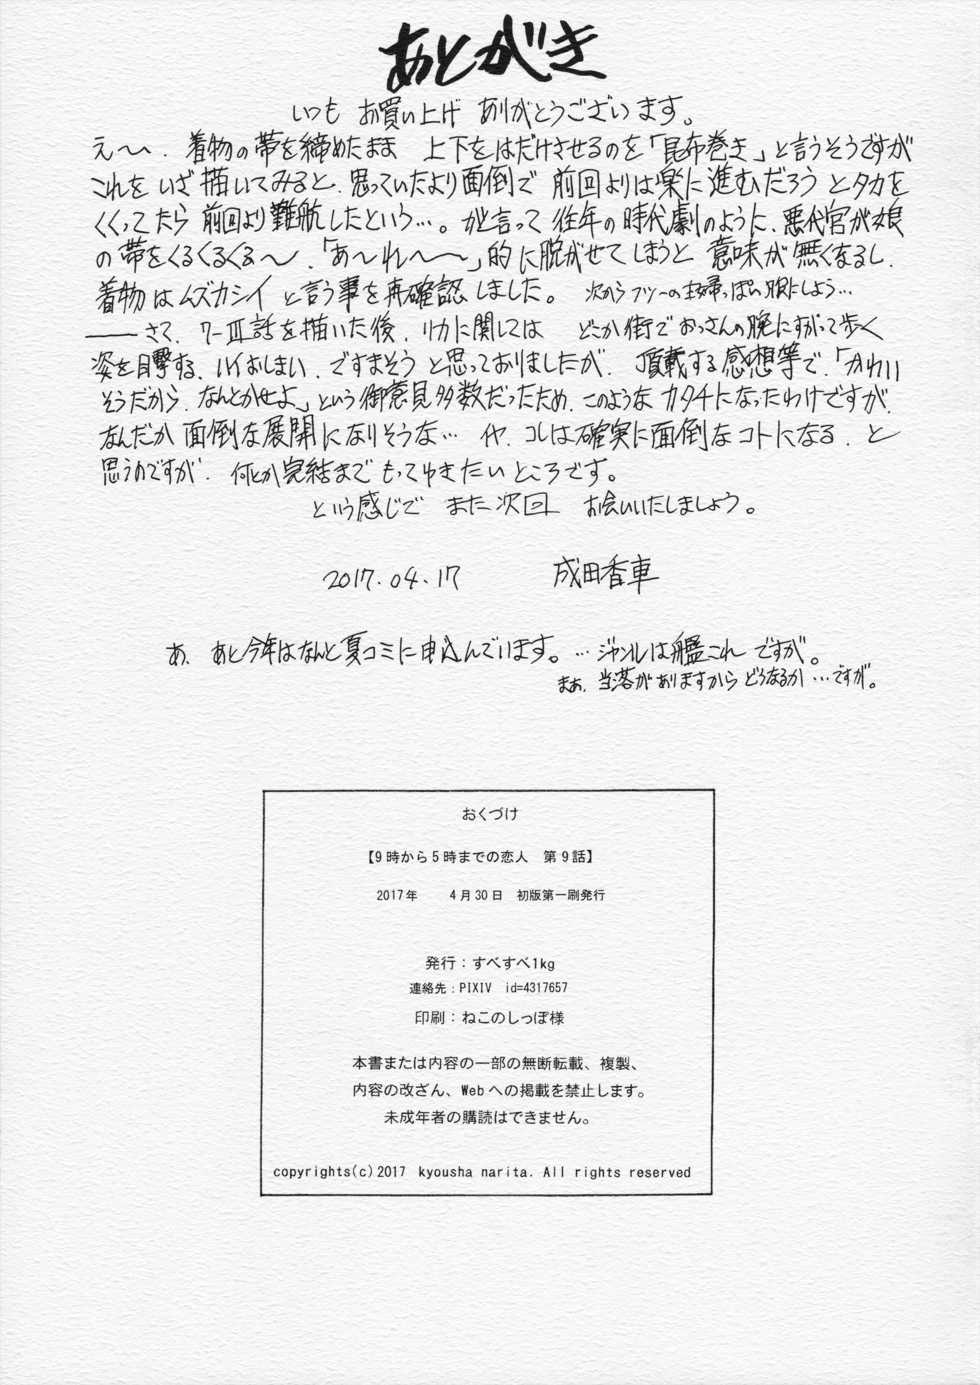 あとがき
いつも お買い上げ ありがとうございます。
え〜〜、着物の帯を締めたまま 上下をはだけさせるのを「昆布巻き」と言うそうですが
これを いざ描いてみると、思っていたより面倒で 前回よりは楽に進むだろう とタカを
くくってたら 前回より難航したという…。が、と言って 往年の時代劇のように、悪代官が娘
の帯をくるくるくる〜、「あ〜れ〜〜」的に脱がせてしまうと 意味が無くなるし、
着物はムズカシイ と言う事を再確認しました。 次からフツーの主婦っぽい服にしよう…
――さて、7-Ⅲ話を描いた後、リカに関しては どこか街でおっさんの腕にすがって歩く
姿を目撃する、ハイおしまい、ですまそう と思っておりましたが、頂載する感想等で、「かわい
そうだから、なんとかせよ」という御意見多数だったため、このような カタチになったわけですが、
なんだか 面倒な展開になりそうな… イヤ、コレは確実に面倒なコトになる、と
思うのですが、何とか完結まで もってゆきたいところです。
という感じで また次回 お会いいたしましょう。
2017.04.17 成田香車
あ、あと今年はなんと夏コミに申込んでいます。…ジャンルは艦これ ですが。
まぁ、当落がありますから どうなるか…ですが。
おくづけ
【9時から5時までの恋人 第9話】
2017年 4月30日 初版第一刷発行
発行：すべすべ1kg
連絡先：PIXIV id=4317657
印刷：ねこのしっぽ様
本書または内容の一部の無断転載、複製、
内容の改ざん、Webへの掲載を禁止します。
未成年者の購読はできません。
copyrights(c)2017 kyousha narita. All rights reserved